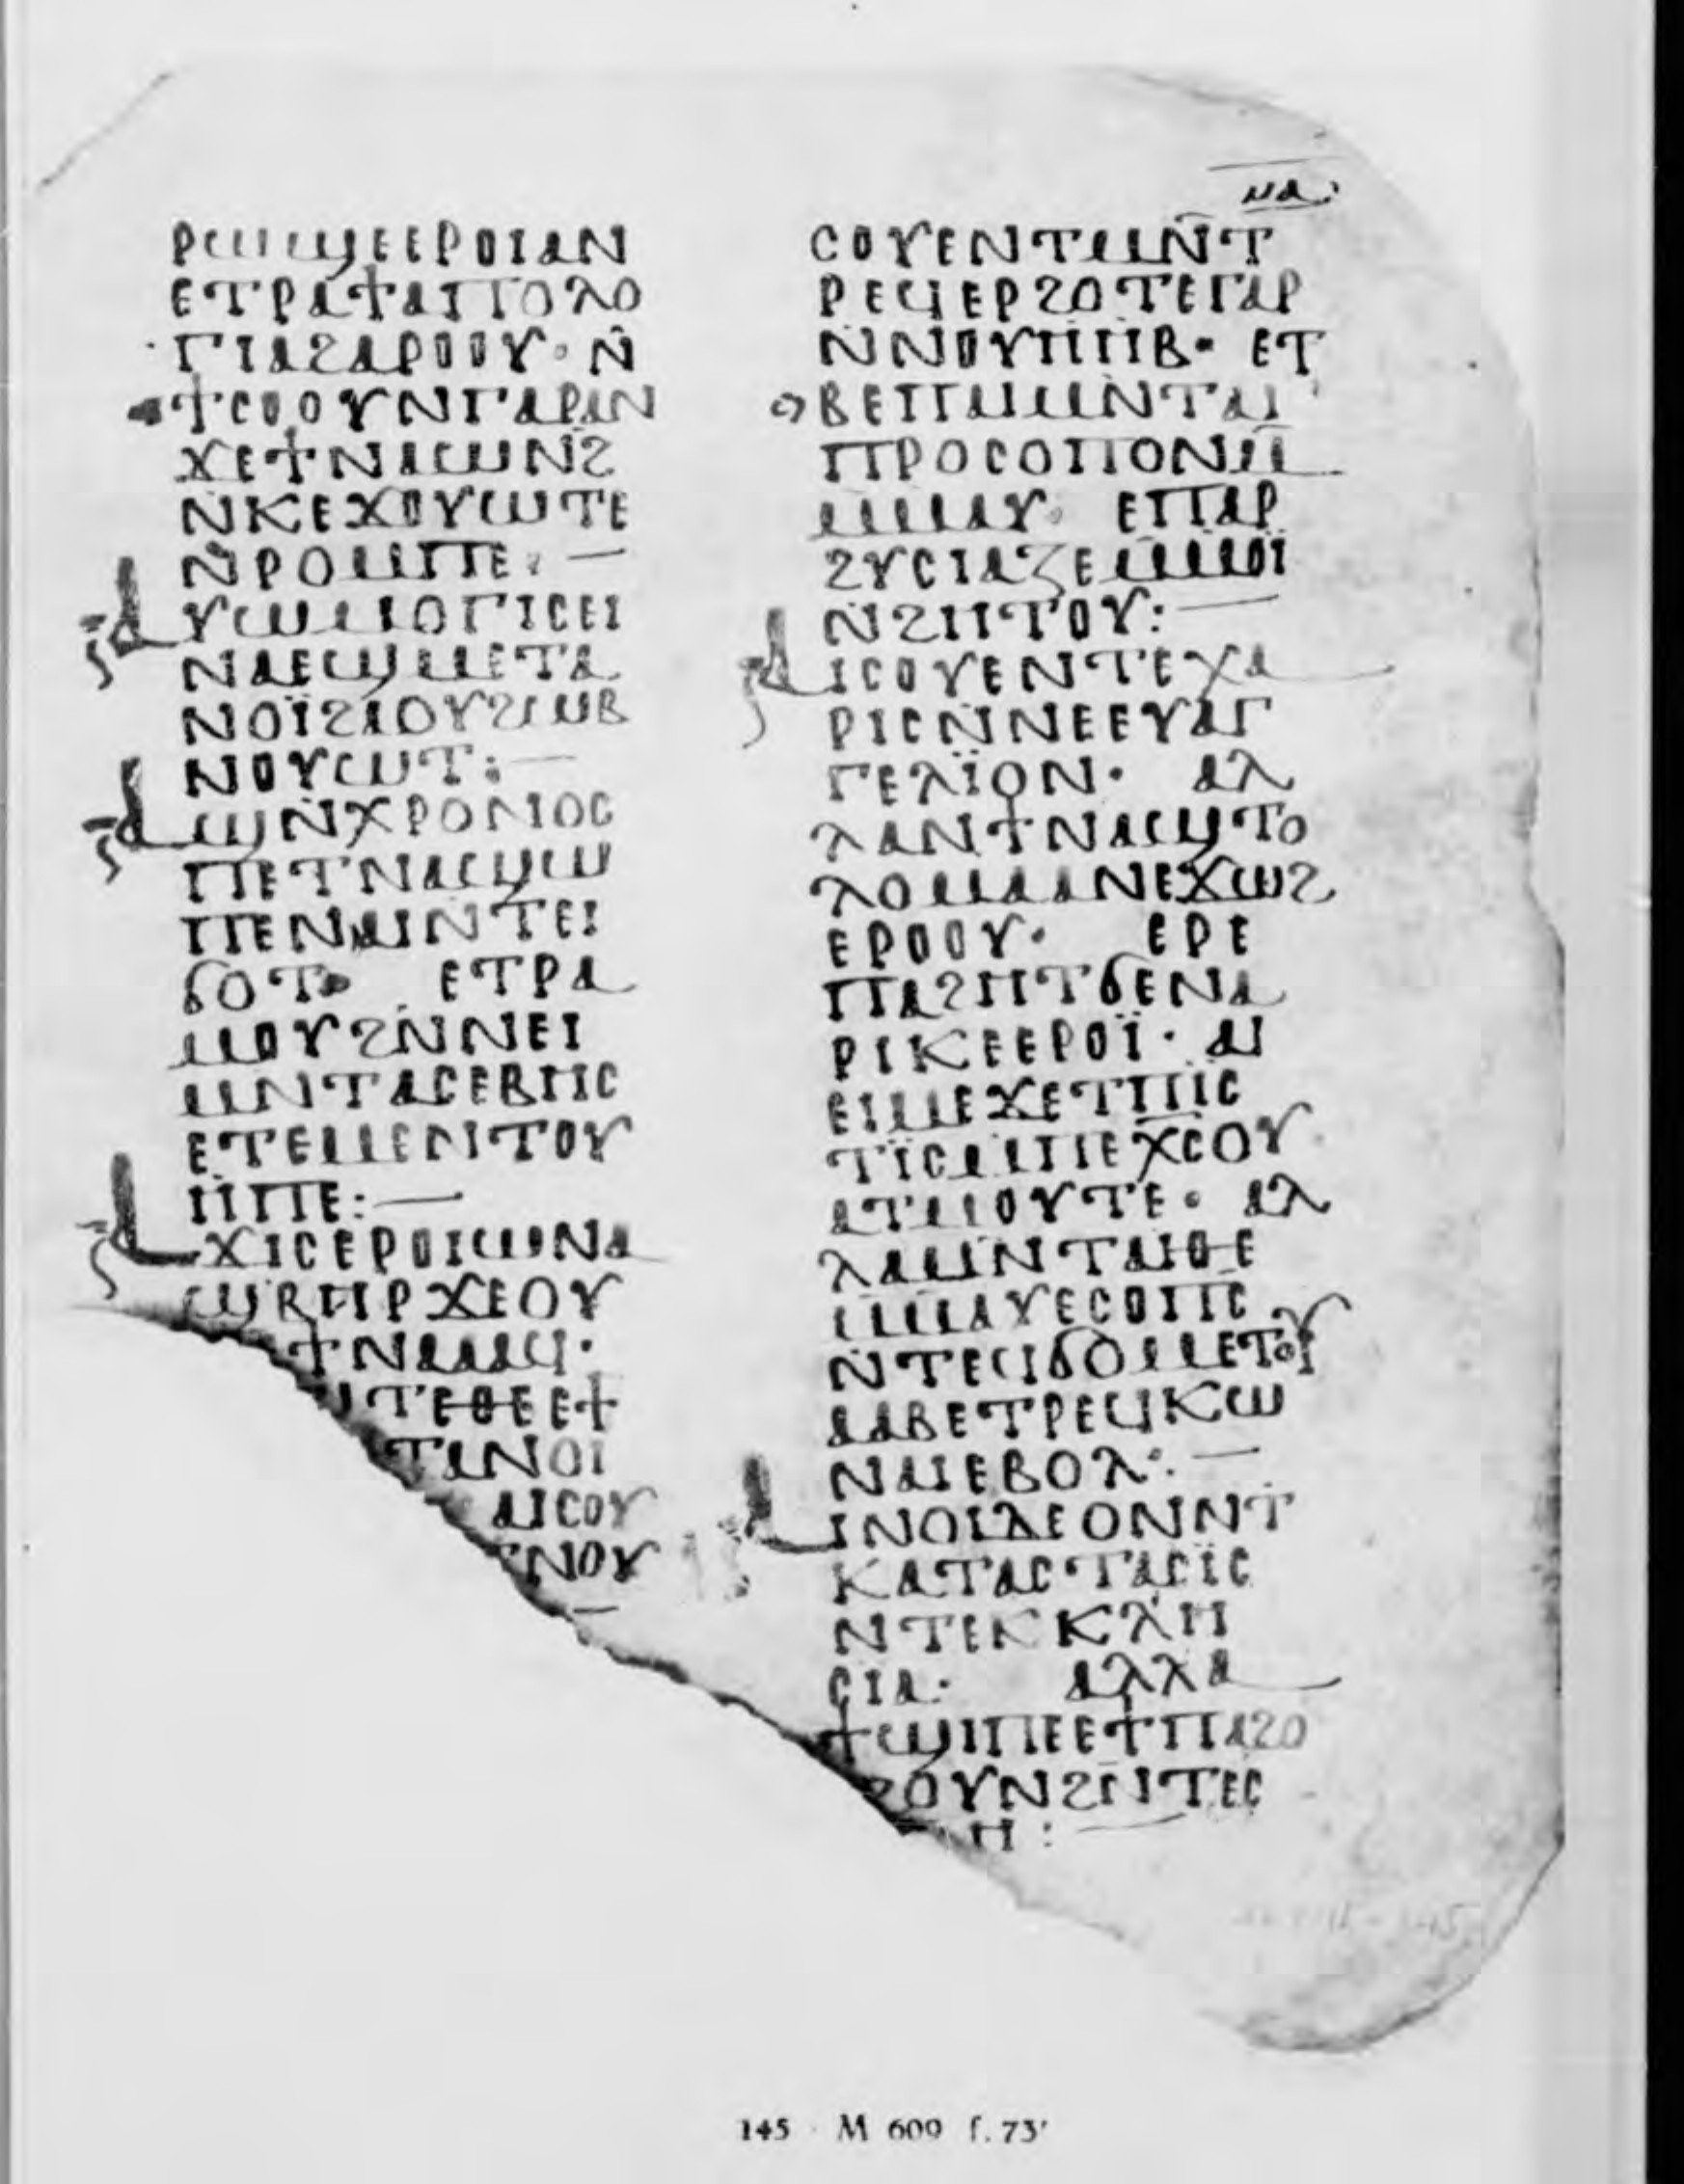 ⲛⲁ:
ⲣⲱϣⲉⲉⲣⲟⲓⲁⲛ
ⲉⲧⲣⲁϯⲁⲡⲟⲗⲟ
ⲅⲓⲁϩⲁⲣⲟⲟⲩ· ⲛ̄
ϯⲥⲟⲟⲩⲛⲅⲁⲣⲁⲛ
ϫⲉϯⲛⲁⲱⲛϩ
ⲛⲕⲉϫⲟⲩⲱⲧⲉ
ⲛ̄ⲣⲟⲙⲡⲉ: —
ⲁⲩⲱⲙⲟⲅⲓⲥⲉⲓ
ⲛⲁⲉϣⲙⲉⲧⲁ
ⲛⲟⲓ̈ϩⲁⲟⲩϩⲱⲃ
ⲛⲟⲩⲱⲧ: —
ⲁϣⲛ̄ⲭⲣⲟⲛⲟⲥ
ⲡⲉⲧⲛⲁϣⲱ
ⲡⲉⲛⲁⲓⲛⲧⲉⲓ
ϭⲟⲧ· ⲉⲧⲣⲁ
ⲙⲟⲩϩⲛ̄ⲛⲉⲓ
ⲙⲛⲧⲁⲥⲉⲃⲏⲥ
ⲉⲧⲉⲙⲉⲛⲧⲟⲩ
ⲏⲡⲉ: —
ⲁϫⲓⲥⲉⲣⲟⲓⲱⲡⲁ
ϣⲃⲏⲣϫⲉⲟⲩ
ϯⲛⲁⲁⲁϥ·
ⲧⲉⲑⲉⲉϯ
ⲧⲁⲛⲟⲓ
ⲁⲓⲥⲟⲩ
ⲛⲟⲩ
—
ⲥⲟⲩⲉⲛⲧⲙⲛ̄ⲧ
ⲣⲉϥⲉⲣϩⲟⲧⲉⲅⲁⲣ
ⲛ̄ⲛⲟⲩⲏⲏⲃ· ⲉⲧ
ⲃⲉⲡⲁⲓⲙⲛ̄ⲧⲁⲓ
ⲡⲣⲟⲥⲟⲡⲟⲛⲙ̄
ⲙⲙⲁⲩ· ⲉⲡⲁⲣ
ϩⲩⲥⲓⲁⲍⲉⲙⲙⲟⲓ̈
ⲛ̄ϩⲏⲧⲟⲩ: —
ⲁⲓⲥⲟⲩⲉⲛⲧⲉⲭⲁ
ⲣⲓⲥⲛ̄ⲛⲉⲉⲩⲁⲅ
ⲅⲉⲗⲓ̈ⲟⲛ· ⲁⲗ
ⲗⲁⲛϯⲛⲁϣⲧⲟ
ⲗⲙⲁⲁⲛⲉϫⲱϩ
ⲉⲣⲟⲟⲩ· ⲉⲣⲉ
ⲡⲁϩⲏⲧϭⲉⲛⲁ
ⲣⲓⲕⲉⲉⲣⲟⲓ̈· ⲁⲓ
ⲉⲓⲙⲉϫⲉⲧⲡⲓⲥ
ⲧⲓ̈ⲥⲙⲡⲉⲭ̄ⲥⲟⲩ
ⲁⲧⲙⲟⲩⲧⲉ· ⲁⲗ
ⲗⲁⲙⲛⲧⲁⲓⲑⲉ
ⲙⲙⲁⲩⲉⲥⲟⲡⲥ
ⲛ̄ⲧⲉϥϭⲟⲙⲉⲧⲟⲩ
ⲁⲁⲃⲉⲧⲣⲉϥⲕⲱ
ⲛⲁⲓⲉⲃⲟⲗ: —
ⲁⲓⲛⲟⲓⲇⲉⲟⲛⲛ̄ⲧ
ⲕⲁⲧⲁⲥⲧⲁⲥⲓ̈ⲥ
ⲛⲧⲉⲕⲕⲗⲏ
ⲥⲓⲁ· ⲁⲗⲗⲁ
ϯϣⲓⲡⲉⲉϯⲡⲁϩⲟ
ϩⲟⲩⲛϩⲛ̄ⲧⲉⲥ
ⲏ: —
145 · M 609 f. 73ʳ